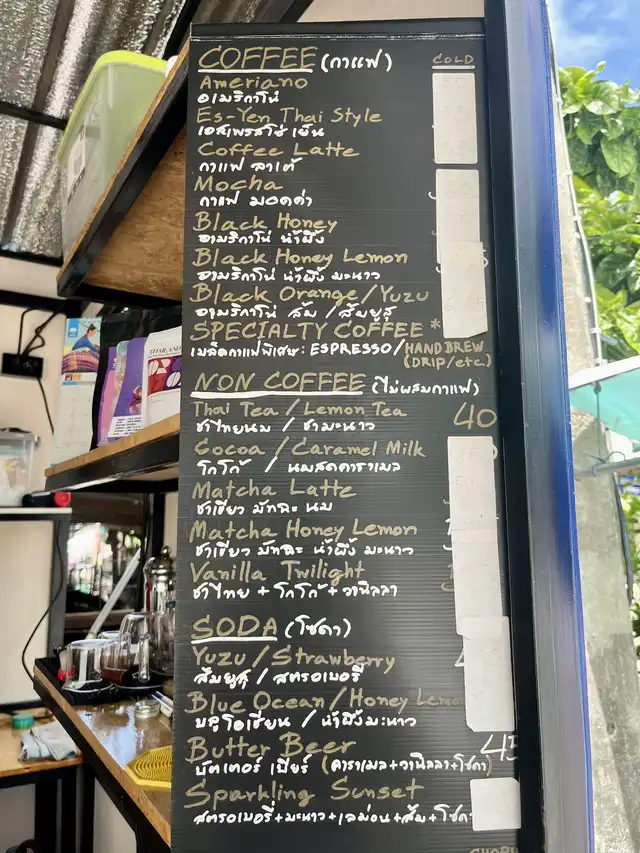 COFFEE (กาแฟ) COLD
Ameriano
อเมริกาโน่
Es-Yen Thai Style
เอสเพรสโซ่ เย็น
Coffee Latte
กาแฟ ลาเต้
Mocha
กาแฟ มอคค่า
Black Honey
อเมริกาโน่ น้ำผึ้ง
Black Honey Lemon
อเมริกาโน่ น้ำผึ้ง มะนาว
Black Orange/Yuzu
อเมริกาโน่ ส้ม / ส้มยูซุ
SPECIALTY COFFEE *
เมล็ดกาแฟพิเศษ: ESPRESSO/HAND BREW
(DRIP/etc.)
NON COFFEE (ไม่ผสมกาแฟ)
Thai Tea / Lemon Tea 40
ชาไทยนม / ชามะนาว
Cocoa / Caramel Milk
โกโก้ / นมสดคาราเมล
Matcha Latte
ชาเขียว มัทฉะ นม
Matcha Honey Lemon
ชาเขียว มัทฉะ น้ำผึ้ง มะนาว
Vanilla Twilight
ชาไทย + โกโก้ + วานิลลา
SODA (โซดา)
Yuzu / Strawberry
ส้มยูซุ / สตรอเบอรี่
Blue Ocean / Honey Lemon
บลูโอเชี่ยน / น้ำผึ้งมะนาว
Butter Beer 45
บัตเตอร์ เบียร์ (คาราเมล+วานิลลา+โซดา)
Sparkling Sunset
สตรอเบอรี่+มะนาว+เลม่อน+ส้ม+โซดา
THAILAND